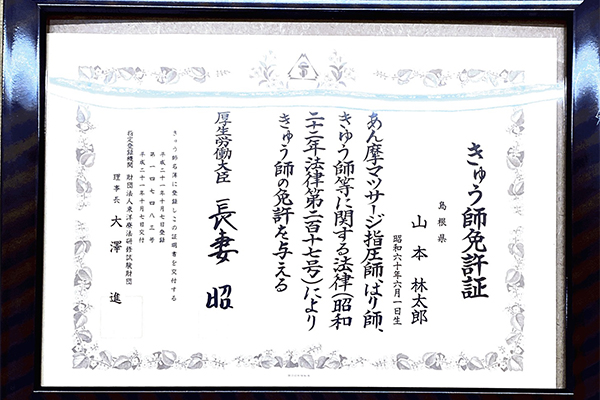 きゅう師免許証
島根県
山本 林太郎
昭和六十年六月一日生
あん摩マッサージ指圧師、はり師、
きゅう師等に関する法律(昭和
二十二年法律第二百十七号)により
きゅう師の免許を与える
厚生労働大臣 長妻 昭
きゅう師名簿に登録しこの証明書を交付する
平成二十一年十月七日登録
第一四七四八三号
平成二十一年十月七日交付
指定登録機関 財団法人東洋療法研修試験財団
理事長 大澤 進